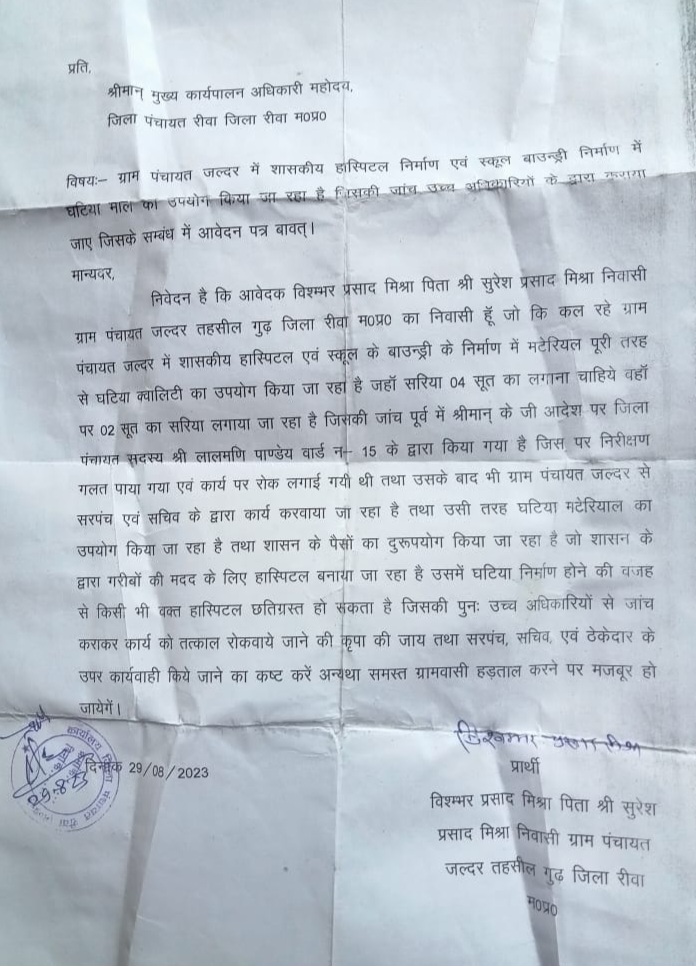 प्रति,
श्रीमान् मुख्य कार्यपालन अधिकारी महोदय,
जिला पंचायत रीवा जिला रीवा म0प्र0
विषयः– ग्राम पंचायत जल्दर में शासकीय हास्पिटल निर्माण एवं स्कूल बाउन्ड्री निर्माण में
घटिया माल का उपयोग किया जा रहा है जिसकी जांच उच्च अधिकारियों के द्वारा कराया
जाए जिसके सम्बंध में आवेदन पत्र बावत्।
मान्यवर,
निवेदन है कि आवेदक विश्म्भर प्रसाद मिश्रा पिता श्री सुरेश प्रसाद मिश्रा निवासी
ग्राम पंचायत जल्दर तहसील गुढ़ जिला रीवा म0प्र0 का निवासी हूॅं जो कि कल रहे ग्राम
पंचायत जल्दर में शासकीय हास्पिटल एवं स्कूल के बाउन्ड्री के निर्माण में मटेरियल पूरी तरह
से घटिया क्वालिटी का उपयोग किया जा रहा है जहॉ सरिया 04 सूत का लगाना चाहिये वहॉ
पर 02 सूत का सरिया लगाया जा रहा है जिसकी जांच पूर्व में श्रीमान् के जी आदेश पर जिला
पंचायत सदस्य श्री लालमणि पाण्डेय वार्ड न– 15 के द्वारा किया गया है जिस पर निरीक्षण
गलत पाया गया एवं कार्य पर रोक लगाई गयी थी तथा उसके बाद भी ग्राम पंचायत जल्दर से
सरपंच एवं सचिव के द्वारा कार्य करवाया जा रहा है तथा उसी तरह घटिया मटेरियाल का
उपयोग किया जा रहा है तथा शासन के पैसों का दुरूपयोग किया जा रहा है जो शासन के
द्वारा गरीबों की मदद के लिए हास्पिटल बनाया जा रहा है उसमें घटिया निर्माण होने की वजह
से किसी भी वक्त हास्पिटल छतिग्रस्त हो सकता है जिसकी पुनः उच्च अधिकारियों से जांच
कराकर कार्य को तत्काल रोकवाये जाने की कृपा की जाय तथा सरपंच, सचिव, एवं ठेकेदार के
उपर कार्यवाही किये जाने का कष्ट करें अन्यथा समस्त ग्रामवासी हड़ताल करने पर मजबूर हो
जायेगें।
विश्वम्भर प्रसाद मिश्रा
कार्यालय जिला पंचायत रीवा
दिनांक 29/08/2023
प्रार्थी
विश्म्भर प्रसाद मिश्रा पिता श्री सुरेश
प्रसाद मिश्रा निवासी ग्राम पंचायत
जल्दर तहसील गुढ़ जिला रीवा
म0प्र0